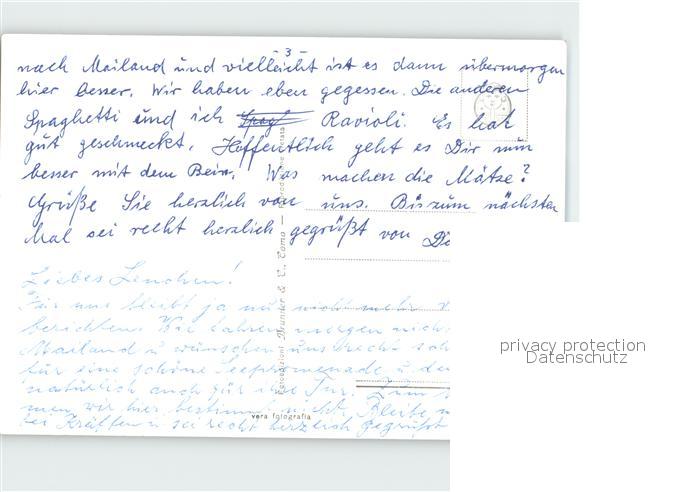 - 3 -
nach Mailand und vielleicht ist es dann übermorgen
hier besser. Wir haben eben gegessen. Die anderen
Spaghetti und ich Ravioli. Es hat
gut geschmeckt. Hoffentlich geht es Dir nun
besser mit dem Bein. Was machen die Mätze?
Grüße Sie herzlich von uns. Bis zum nächsten
Mal sei recht herzlich gegrüßt von
Liebes Lenchen!
Für uns bleibt ja nun nicht mehr
berichten. Wir fahren morgen
Mailand u wünschen uns recht
für eine schöne Seepromenade u
natürlich auch für Zum
men wir hier bestimmt nicht. Bleibe
bei Kräften u sei recht herzlich gegrüßt
Brunner & C., Como
vera fotografia
privacy protection
Datenschutz